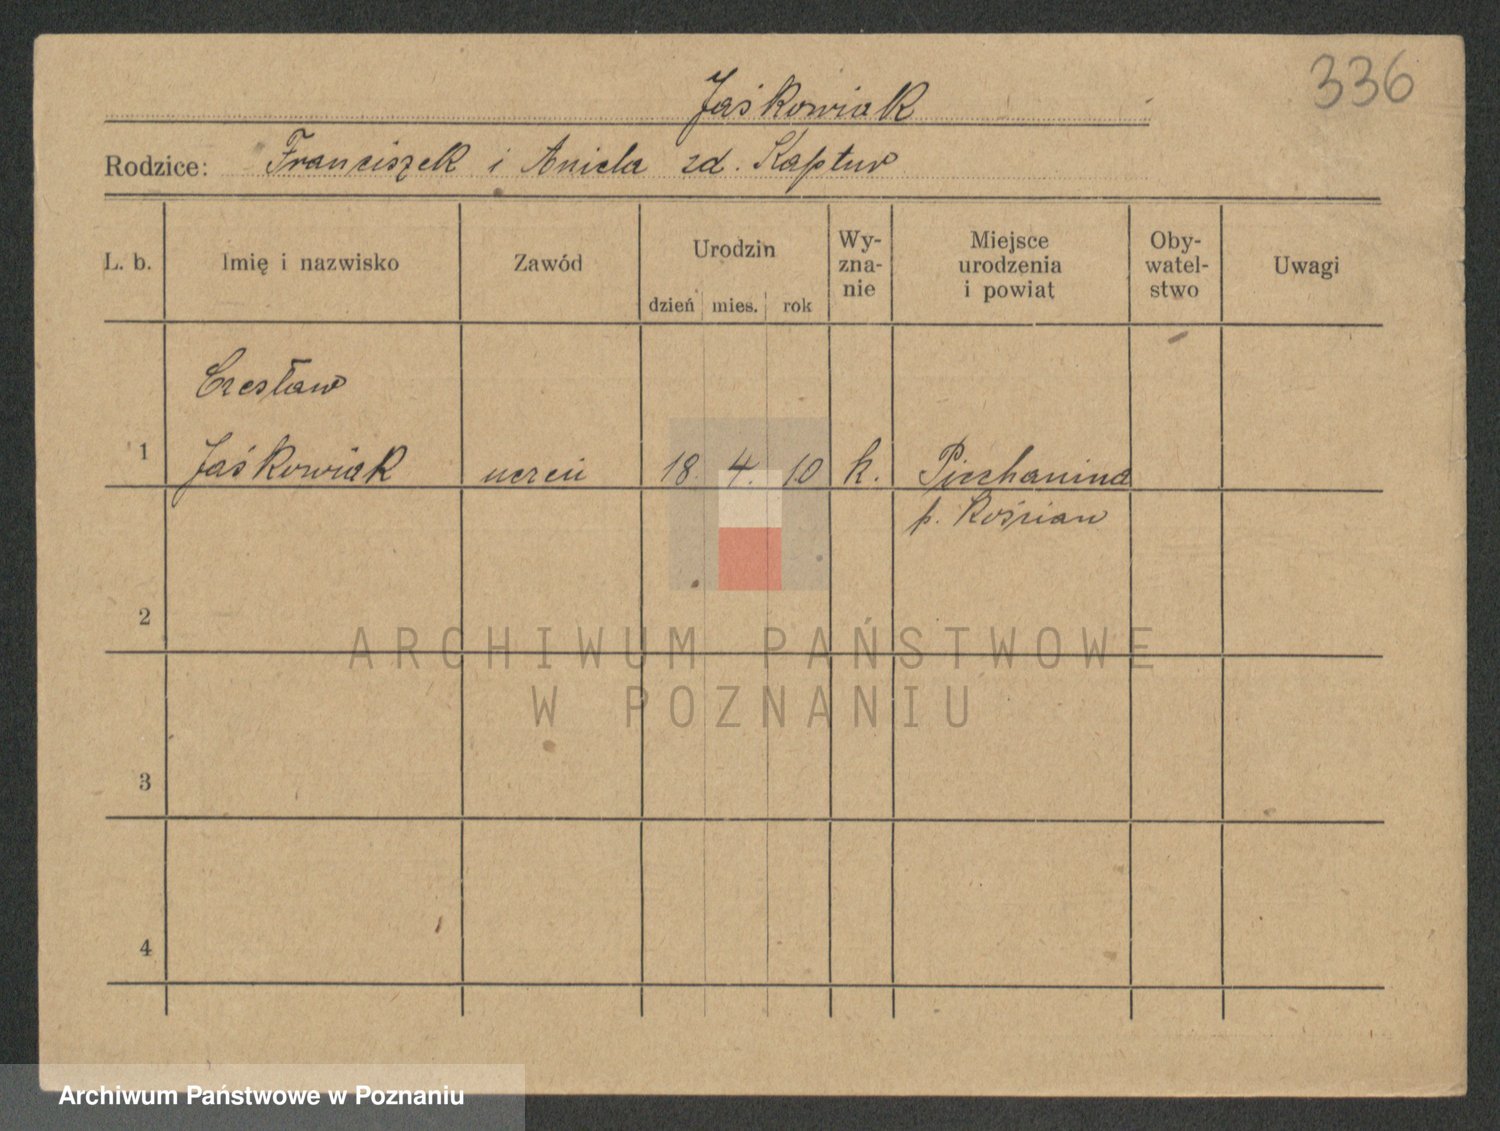 336
Jaśkowiak
Rodzice: Franciszek i Aniela zd. Kaptur
L. b.
Imię i nazwisko
Zawód
Urodzin
dzień
mies.
rok
Wy-
zna-
nie
Miejsce
urodzenia
i powiat
Oby-
watel-
stwo
Uwagi
Czesław
1 Jaśkowiak uczeń 18. 4. 10 k. Piechanina
p. Kościan
2
3
4
ARCHIWUM PAŃSTWOWE
W POZNANIU
Archiwum Państwowe w Poznaniu